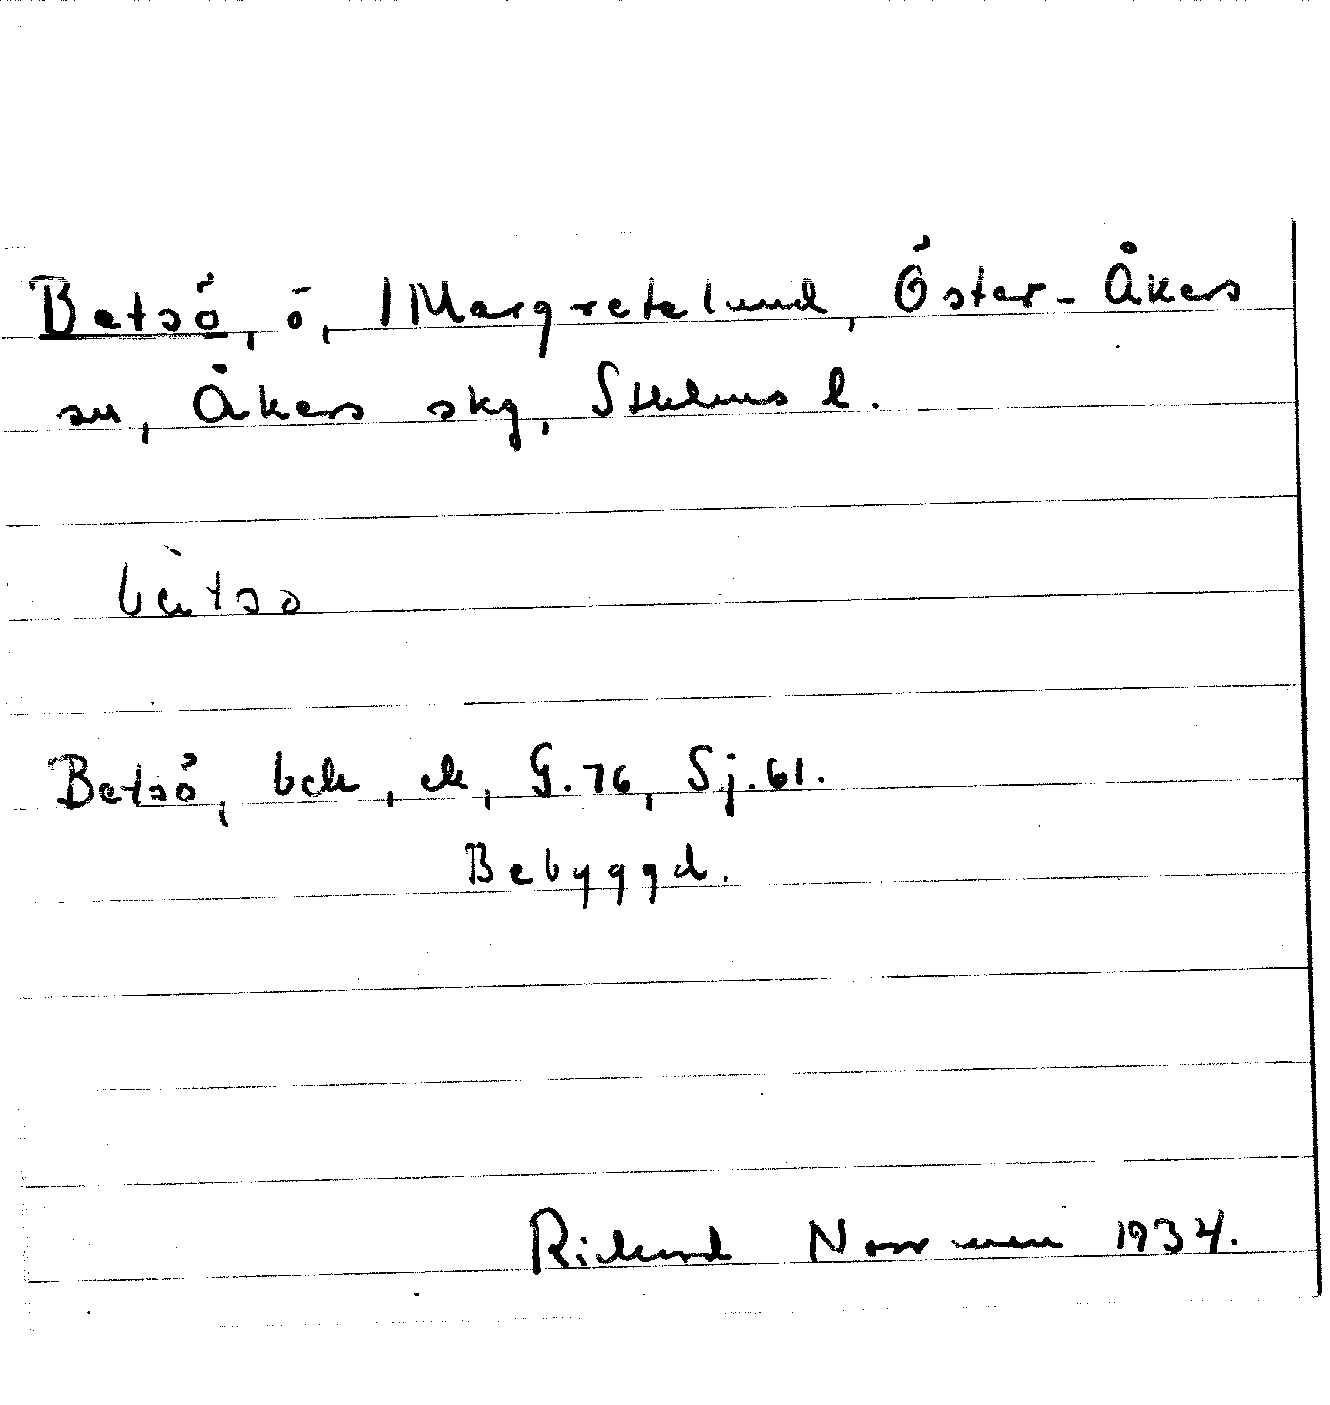 Betsö, ö, Margretelund, Öster-Åkers
sn, Åkers skg, Sthlms l.
bètso
Betsö, bek, ek, G. 76, Sj. 61.
Bebyggd.
Rickard Norrman 1934.